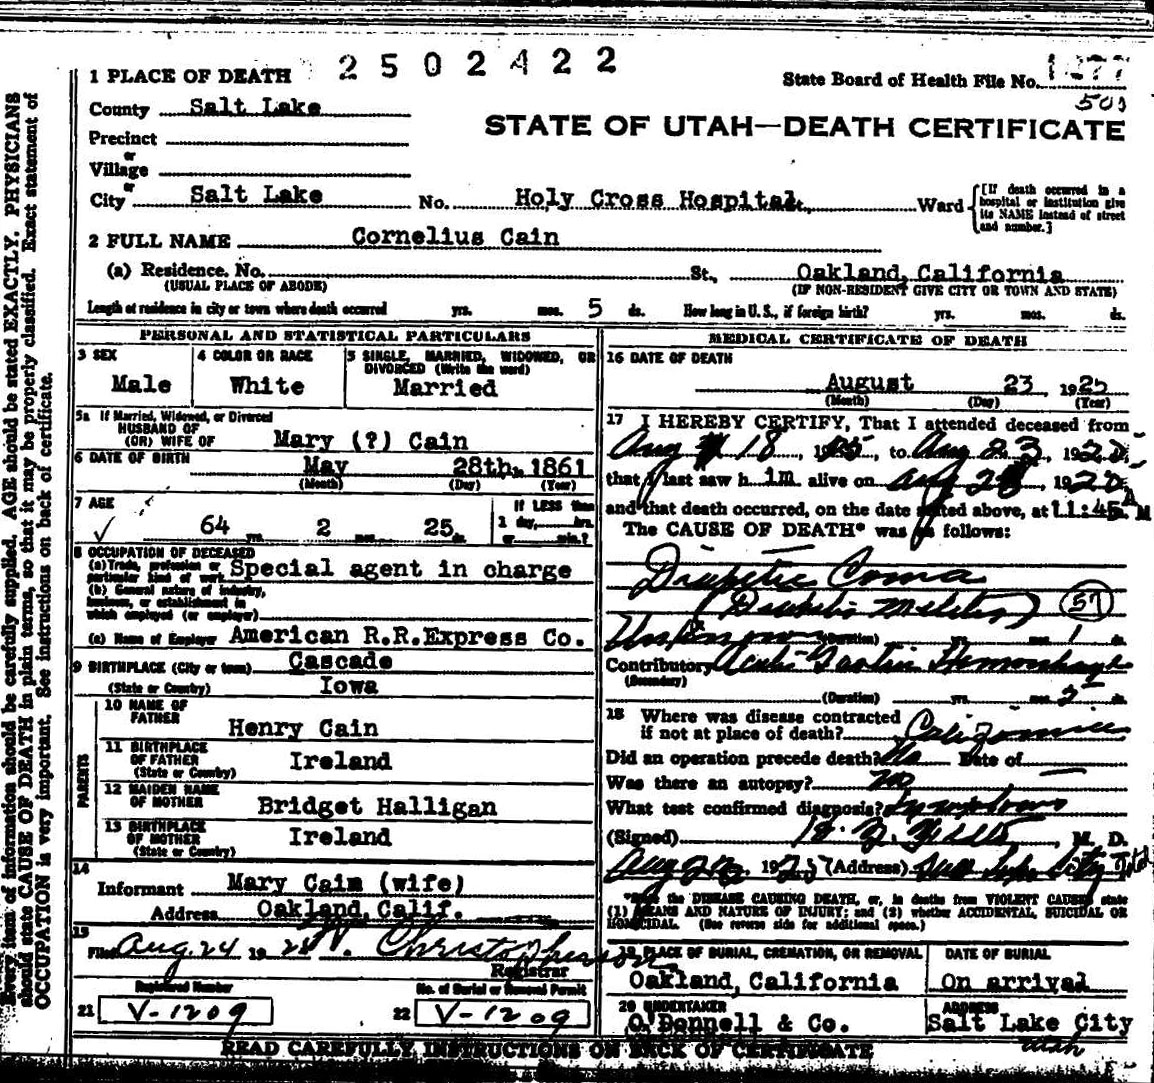 2502422
1 PLACE OF DEATH
State Board of Health File No. 1877
County Salt Lake
STATE OF UTAH—DEATH CERTIFICATE
Precinct
or
Village
or
City Salt Lake No. Holy Cross Hospital St., Ward
[If death occurred in a hospital or institution give its NAME instead of street and number.]
2 FULL NAME Cornelius Cain
(a) Residence. No. St., Oakland, California
(USUAL PLACE OF ABODE) (IF NON-RESIDENT GIVE CITY OR TOWN AND STATE)
Length of residence in city or town where death occurred yrs. mos. 5 ds. How long in U. S., if foreign birth? yrs. mos. ds.
PERSONAL AND STATISTICAL PARTICULARS
3 SEX Male
4 COLOR OR RACE White
5 SINGLE, MARRIED, WIDOWED, OR DIVORCED (Write the word) Married
5a If Married, Widowed, or Divorced
HUSBAND OF
(OR) WIFE OF Mary (?) Cain
6 DATE OF BIRTH May 28th, 1861
(Month) (Day) (Year)
7 AGE
✓ 64 yrs. 2 mos. 25 ds.
If LESS than 1 day, hrs. or min.?
8 OCCUPATION OF DECEASED
(a) Trade, profession or particular kind of work Special agent in charge
(b) General nature of industry, business, or establishment in which employed (or employer)
(c) Name of Employer American R.R.Express Co.
9 BIRTHPLACE (City or town) Cascade
(State or Country) Iowa
PARENTS
10 NAME OF FATHER Henry Cain
11 BIRTHPLACE OF FATHER (State or Country) Ireland
12 MAIDEN NAME OF MOTHER Bridget Halligan
13 BIRTHPLACE OF MOTHER (State or Country) Ireland
14
Informant Mary Cain (wife)
Address Oakland, Calif.
15
Filed Aug. 24 1925 Christopherson
Registrar
Registered Number
21 V-1209
No. of Burial or Removal Permit
22 V-1209
MEDICAL CERTIFICATE OF DEATH
16 DATE OF DEATH
August 23, 1925
(Month) (Day) (Year)
17 I HEREBY CERTIFY, That I attended deceased from
Aug 18, 1925, to Aug 23, 1925,
that I last saw him alive on Aug 23, 1925,
and that death occurred, on the date stated above, at 11:45 A M
The CAUSE OF DEATH* was as follows:
Diabetic Coma
(Diabetes Mellitus) 57
Unknown (Duration) yrs. mos. 1 ds.
Contributory Acute Gastric Hemorrhage
(Secondary)
(Duration) yrs. mos. 2 ds.
18 Where was disease contracted
if not at place of death? California
Did an operation precede death? No Date of
Was there an autopsy? no
What test confirmed diagnosis? Symptoms
(Signed) M. D.
Aug 23, 1925 (Address) Salt Lake City Utah
*State the DISEASE CAUSING DEATH, or, in deaths from VIOLENT CAUSES state
(1) MEANS AND NATURE OF INJURY; and (2) whether ACCIDENTAL, SUICIDAL OR
HOMICIDAL. (See reverse side for additional space.)
19 PLACE OF BURIAL, CREMATION, OR REMOVAL
Oakland, California
DATE OF BURIAL
On arrival
20 UNDERTAKER
O'Donnell & Co.
ADDRESS
Salt Lake City
Utah
READ CAREFULLY INSTRUCTIONS ON BACK OF CERTIFICATE
Every item of information should be carefully supplied. AGE should be stated EXACTLY. PHYSICIANS
should state CAUSE OF DEATH in plain terms, so that it may be properly classified. Exact statement of
OCCUPATION is very important. See instructions on back of certificate.